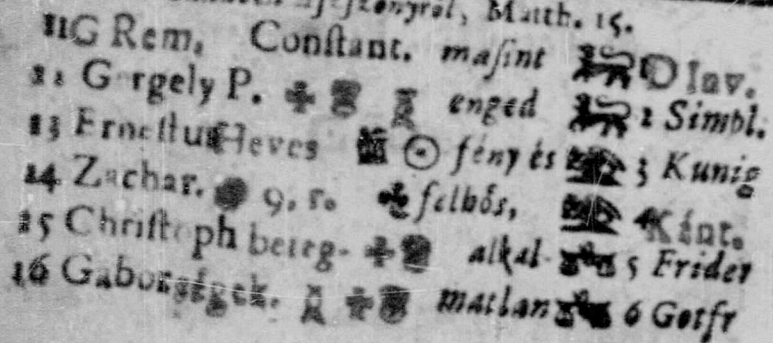 Matth. 15.
11 G Rem. Constant. masint D Inv.
12 Gergely P. enged 2 Simpl.
13 Ernestus Heves ☉ fény és 3 Kunig
14 Zachar. 9. r. felhős, 4 Kánt.
15 Christoph beteg- alkal- 5 Frider
16 Gabor ségek. matlan 6 Gotfr